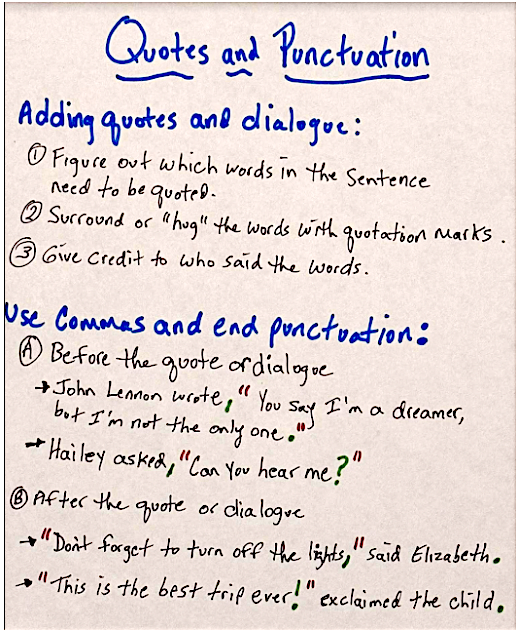 Quotes and Punctuation
Adding quotes and dialogue:
① Figure out which words in the sentence
need to be quoted.
② Surround or "hug" the words with quotation marks.
③ Give credit to who said the words.
Use Commas and end punctuation:
Ⓐ Before the quote or dialogue
→ John Lennon wrote, "You say I'm a dreamer,
but I'm not the only one."
→ Hailey asked, "Can you hear me?"
Ⓑ After the quote or dialogue
→ "Don't forget to turn off the lights," said Elizabeth.
→ "This is the best trip ever!" exclaimed the child.